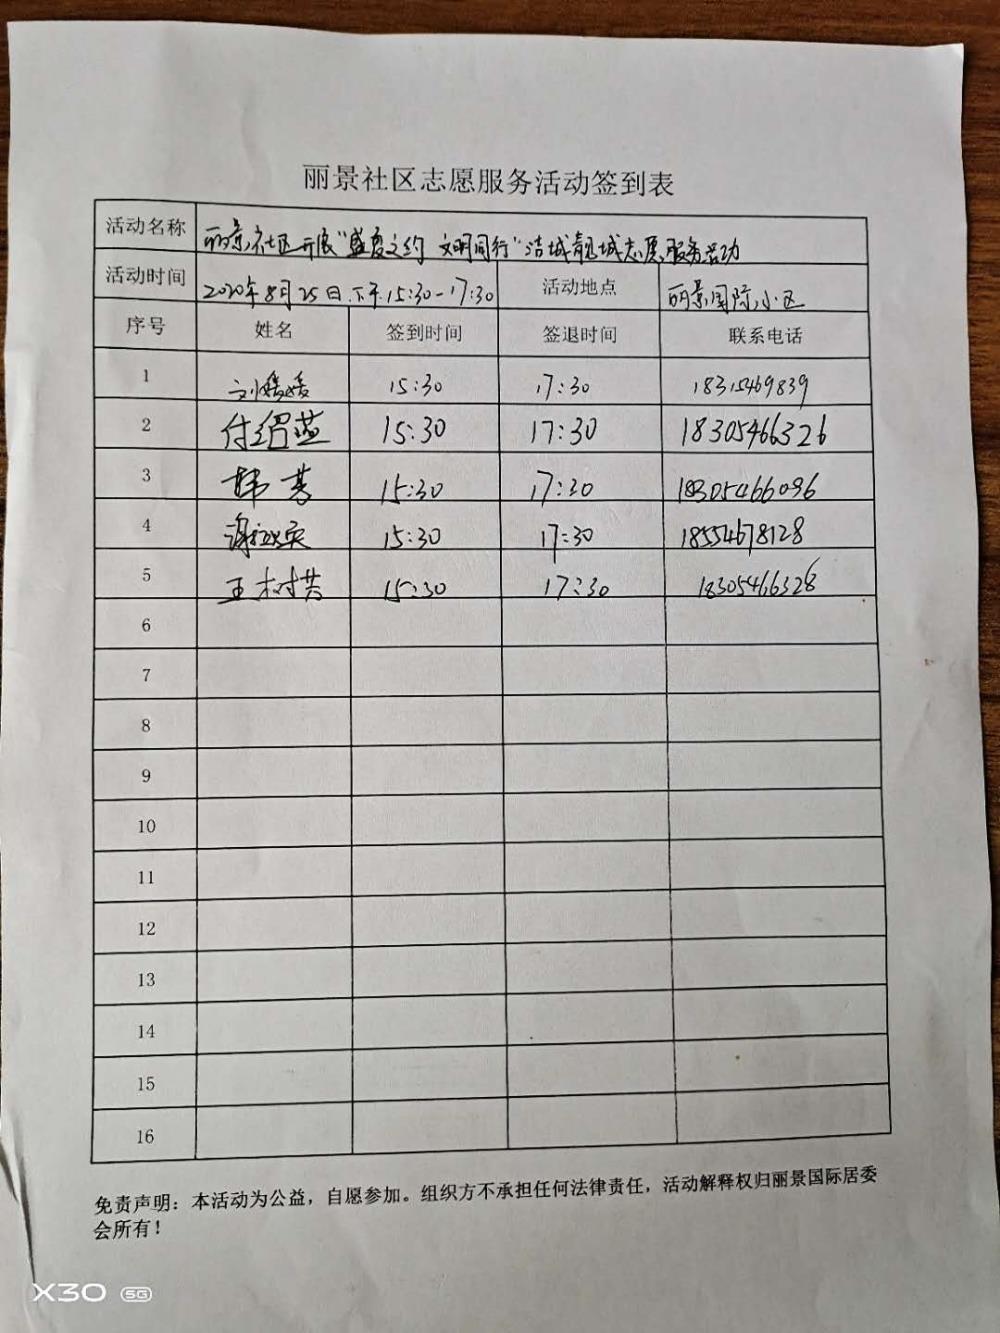 丽景社区志愿服务活动签到表
活动名称 丽景社区开展"盛夏之约 文明同行"洁城靓城志愿服务活动
活动时间 2020年8月25日下午15:30-17:30 活动地点 丽景国际小区
序号 姓名 签到时间 签退时间 联系电话
1 刘媛媛 15:30 17:30 18315469839
2 付绍蓝 15:30 17:30 18305466326
3 韩芳 15:30 17:30 18305466096
4 15:30 17:30 18554678128
5 王树芸 15:30 17:30 18305466328
6
7
8
9
10
11
12
13
14
15
16
免责声明：本活动为公益，自愿参加。组织方不承担任何法律责任，活动解释权归丽景国际居委
会所有！
X30 5G